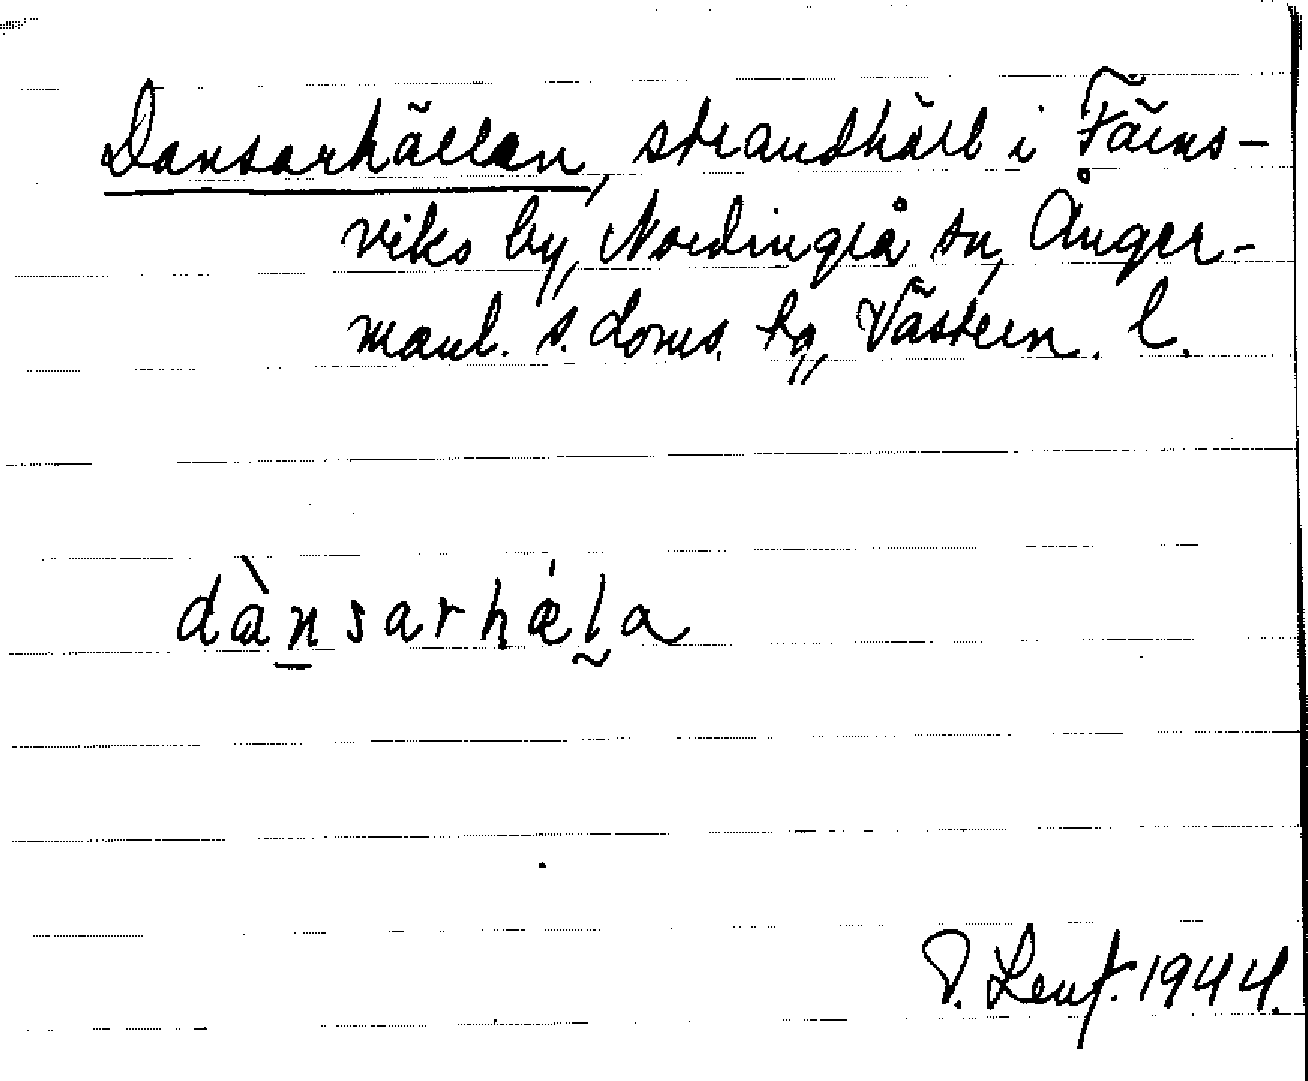 Dansarhällan, strandhäll i Fäins-
viks by, Nordingrå sn, Ånger-
manl. s. doms. tg, Västern. l.
dànsarhæla
D. Lenf. 1944.